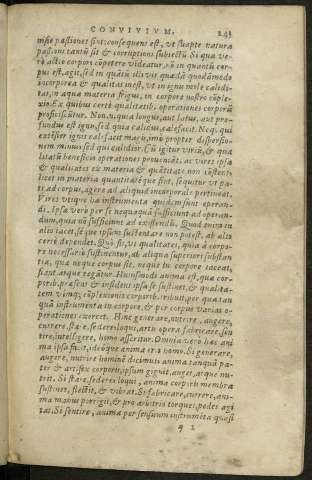 CONVIVIVM. 243
msse passiones sint: consequens est, vt suapte natura
passioni tantũ sit & corruptioni subiectũ. Si qua ve-
rò actio corpori cõpetere videatur, nõ in quantũ cor-
pus est, agit, sed in quãtũ illi vis quædã quodãmodo
incorporea & qualitas inest, vt in igne mole calidi-
tas, in aqua materia frigus, in corpore nostro cõple-
xio. Ex quibus certè qualitatib. operationes corporũ
proficiscũtur. Non. n. quia longus, aut latus, aut pro-
fundus est ignis, sed quia calidus, calefacit. Neq. qui
extẽsior ignis calefacit magis, imò propter dispersio-
nem minus, sed qui calidior. Cũ igitur virtũ, & qua
litatũ beneficio operationes proueniãt, ac vires ipsæ
& qualitates ex materia & quãtitate non cõstent,
licet in materia quantitatéque sint, sequitur vt pa-
te, ad corpus, agere ad aliquid incorporale pertineat.
Vires vtique hæ instrumenta quidem sunt operan-
di. Ipsæ verò per se nequaquã sufficiunt ad operan-
dum, quia nõ sufficiunt ad existendũ. Quod enim in
alio iacet, seque ipsum sustentare non potest, ab alio
certè dependet. Quò fit, vt qualitates, quia à corpo-
re necessariò sustinentur, ab aliqua superiori substan
tia, quæ neque corpus sit, neque in corpore iaceat,
fiant, atque regãtur. Huiusmodi anima est, quæ cor-
porib. præsens & insidens ipsa se sustinet, & qualita-
tem vimq; cõplexionis corporib. tribuit, per quæ tan
quã instrumenta in corpore, & per corpus varias o-
perationes exercet. Hinc generare, nutrire, augere,
currere, stare, sedere, loqui, artis opera fabricare, sen
tire, intelligere, homo asseritur. Omnia verò hæc ani
ma ipsa facit, ideóque anima erit homo. Si generare,
augere, nutrire hominẽ dicimus anima tanquã pa-
ter & artifex corporis, ipsum gignit, auget, atque nu-
trit. Si stare, sedere, loqui, anima corporis membra
sustinet, flectit, & vibrat. Si fabricare, currere, ani-
ma manus porrigit, & pro arbitrio torquet, pedes agi
tat. Si sentire, anima per sensuum instrumẽta quasi
q 2